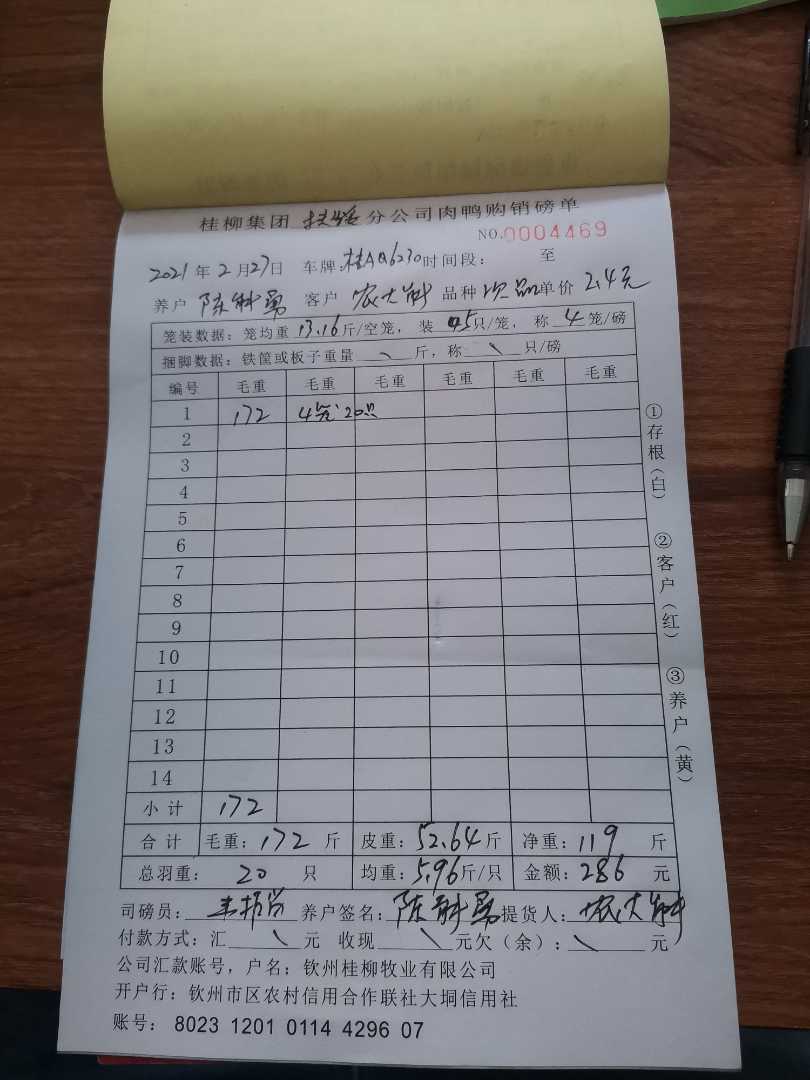 桂柳集团 扶绥 分公司肉鸭购销磅单
NO.0004469
2021年2月27日 车牌:桂AQ6230 时间段: 至
养户 陈科勇 客户 农大科 品种 次品 单价 2.4元
笼装数据:笼均重13.16斤/空笼,装5只/笼,称4笼/磅
捆脚数据:铁筐或板子重量\斤,称\只/磅
编号 毛重 毛重 毛重 毛重 毛重 毛重
1 172 4笼 20只
2
3
4
5
6
7
8
9
10
11
12
13
14
小计 172
合计 毛重:172斤 皮重:52.64斤 净重:119斤
总羽重:20只 均重:5.96斤/只 金额:286元
司磅员: 养户签名:陈科勇 提货人:农大科
付款方式:汇\元 收现\元欠(余):\元
公司汇款账号,户名:钦州桂柳牧业有限公司
开户行:钦州市区农村信用合作联社大垌信用社
账号:8023 1201 0114 4296 07
①存根(白)
②客户(红)
③养户(黄)